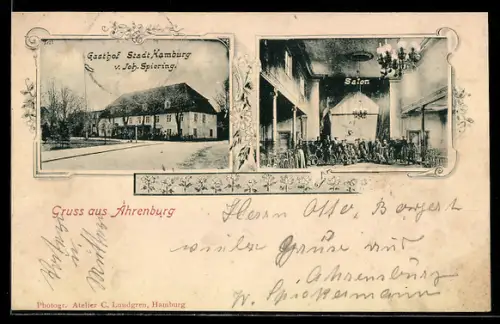 Gasthof Stadt Hamburg
v. Joh. Spiering.
Salon
Gruss aus Ahrenburg
Herrn Otto Bargert
Grüße aus
Ahrensburg
Photogr. Atelier C. Lundgren, Hamburg